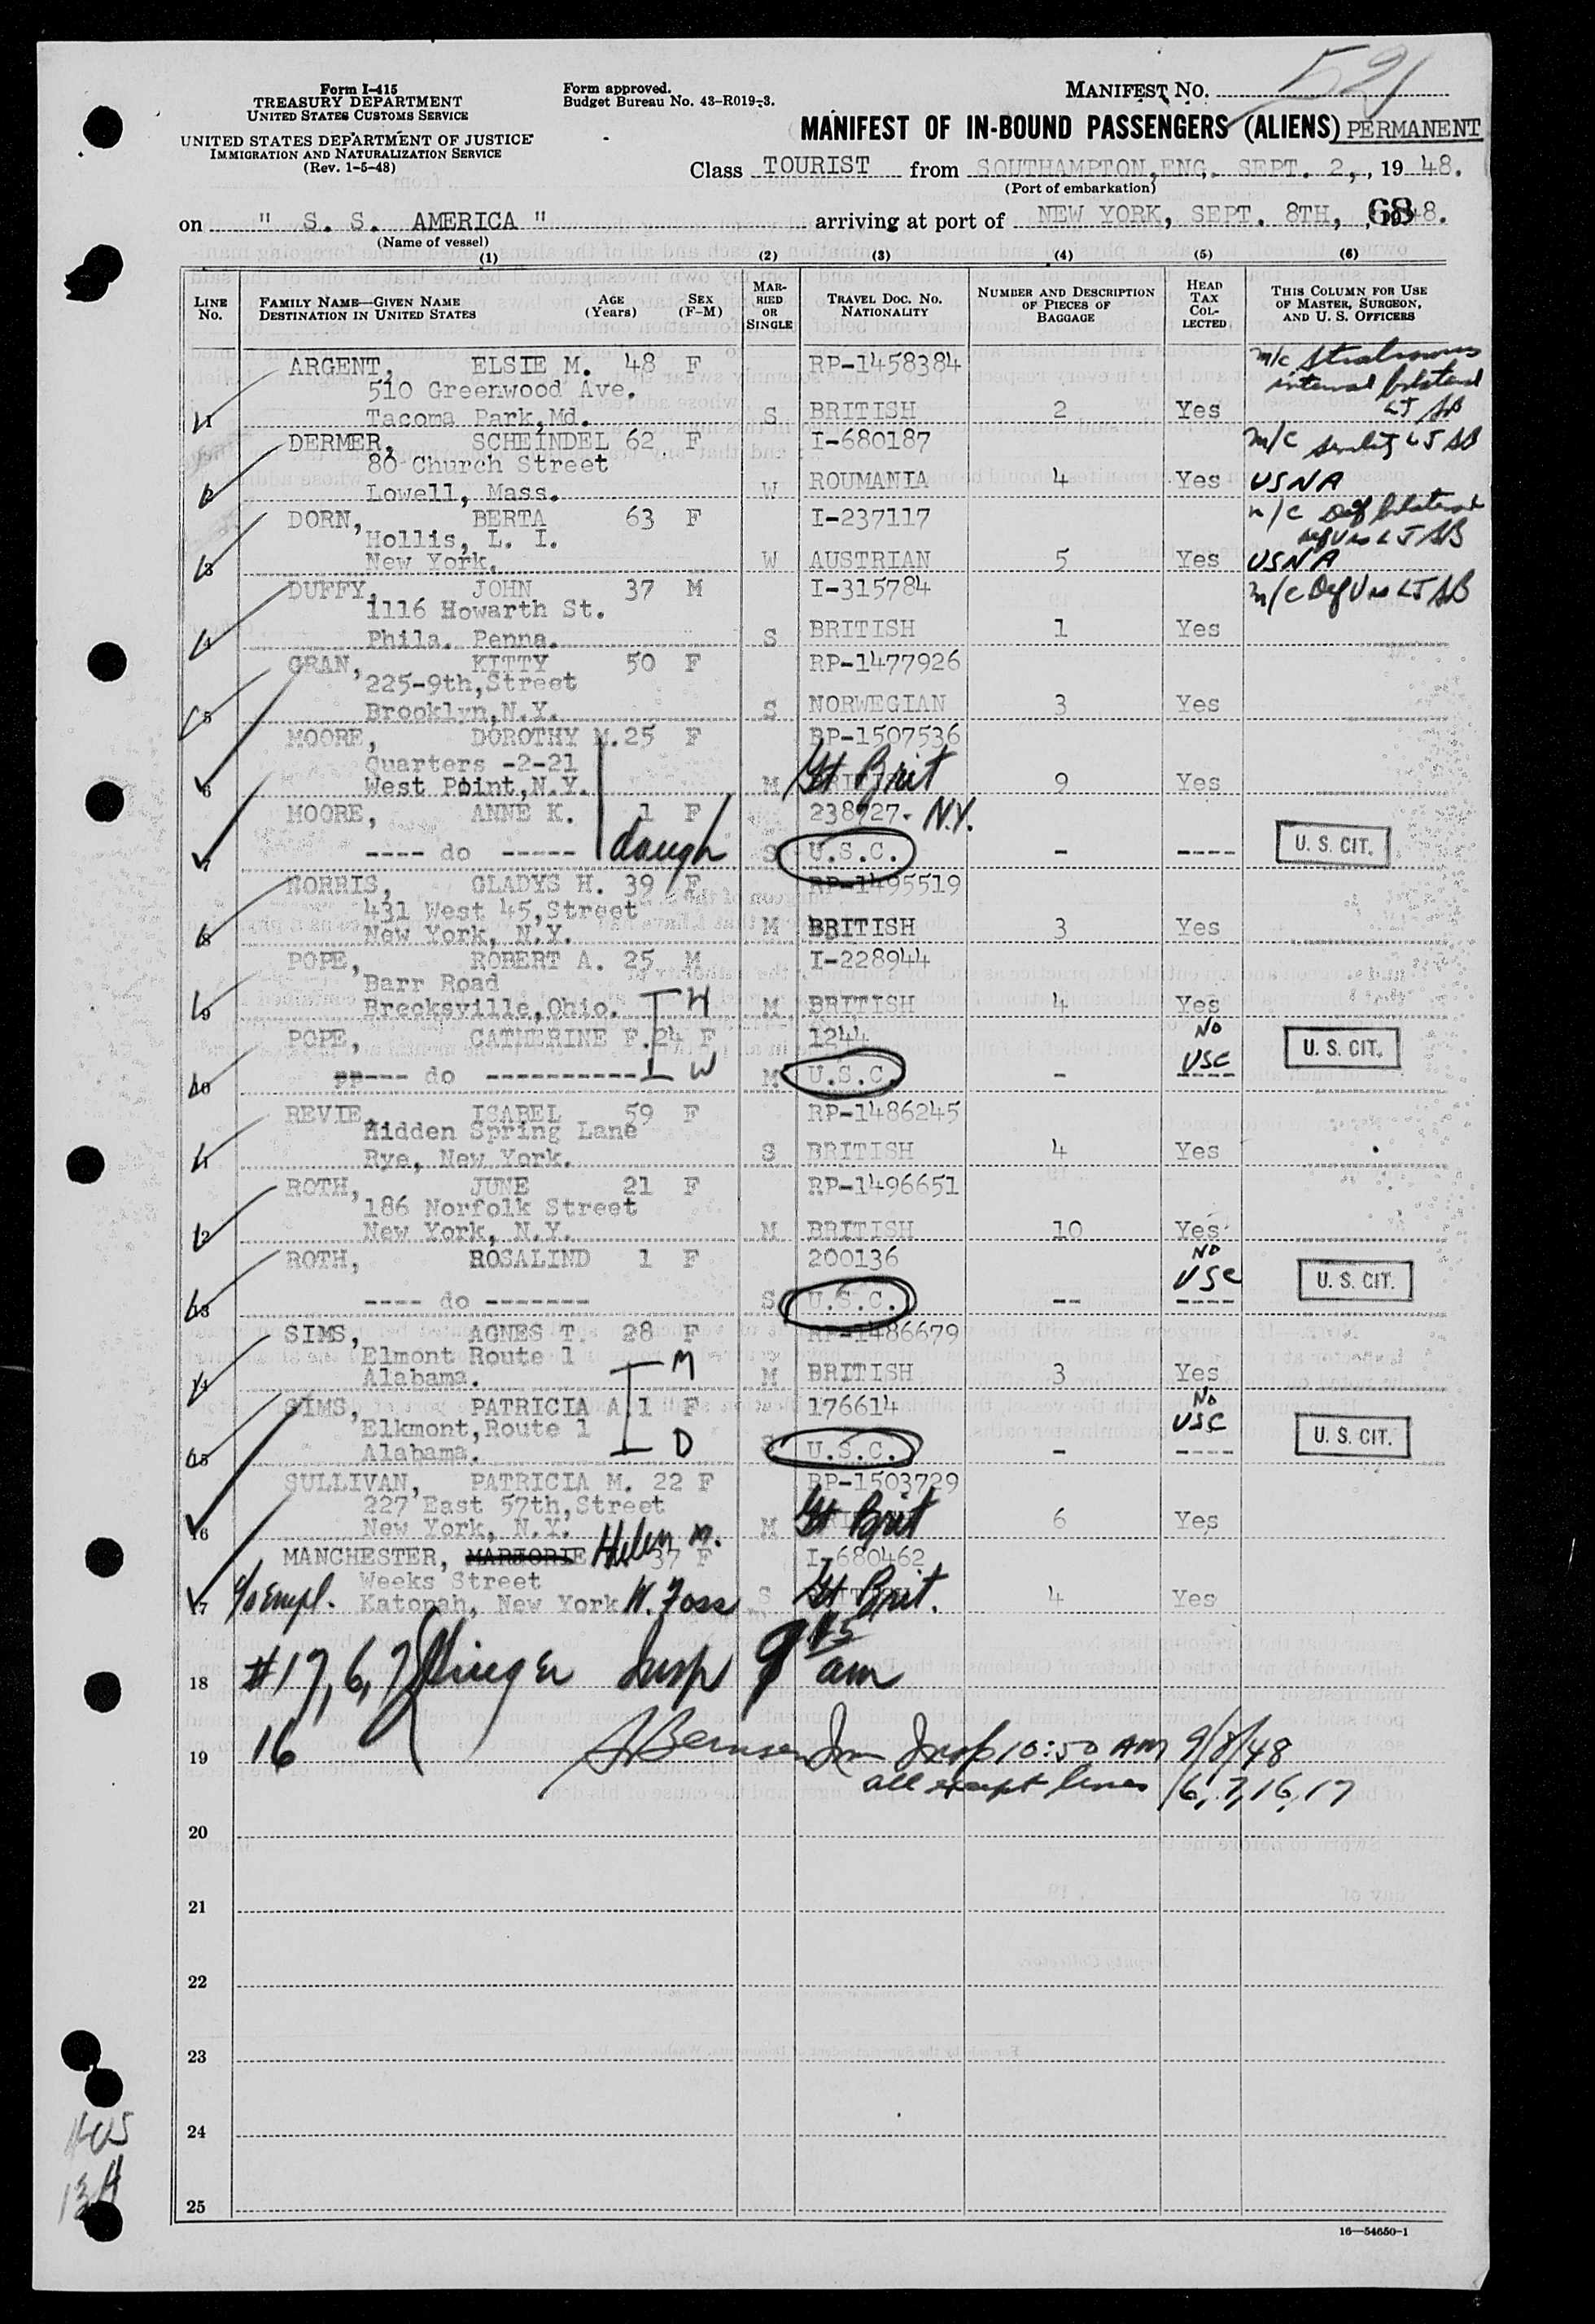 Form I-415
TREASURY DEPARTMENT
UNITED STATES CUSTOMS SERVICE
UNITED STATES DEPARTMENT OF JUSTICE
IMMIGRATION AND NATURALIZATION SERVICE
(Rev. 1-5-48)
Form approved.
Budget Bureau No. 43-R019-3.
MANIFEST NO. 521
MANIFEST OF IN-BOUND PASSENGERS (ALIENS) PERMANENT
Class TOURIST from SOUTHAMPTON, ENG. SEPT. 2, , 19 48.
(Port of embarkation)
on " S. S. AMERICA " arriving at port of NEW YORK, SEPT. 8TH, , 1948.
68
(Name of vessel)
(1) (2) (3) (4) (5) (6)
LINE No. FAMILY NAME—GIVEN NAME DESTINATION IN UNITED STATES AGE (Years) SEX (F-M) MARRIED OR SINGLE TRAVEL DOC. NO. NATIONALITY NUMBER AND DESCRIPTION OF PIECES OF BAGGAGE HEAD TAX COLLECTED THIS COLUMN FOR USE OF MASTER, SURGEON, AND U. S. OFFICERS
ARGENT, ELSIE M. 48 F RP-1458384 m/c Strabismus
510 Greenwood Ave. internal bilateral
1 Tacoma Park, Md. S BRITISH 2 Yes LJ AB
DERMER, SCHEINDEL 62 F I-680187 m/c senility LJ AB
80 Church Street
2 Lowell, Mass. W ROUMANIA 4 Yes USNA
DORN, BERTA 63 F I-237117 m/c Def bilateral
Hollis, L. I. Def Vis LJ AB
3 New York. W AUSTRIAN 5 Yes USNA
DUFFY, JOHN 37 M I-315784 m/c Def Vis LJ AB
1116 Howarth St.
4 Phila. Penna. S BRITISH 1 Yes
GRAN, KITTY 50 F RP-1477926
225-9th, Street
5 Brooklyn, N.Y. S NORWEGIAN 3 Yes
MOORE, DOROTHY M. 25 F RP-1507536
Quarters -2-21
6 West Point, N.Y. M Gt Brit 9 Yes
MOORE, ANNE K. 1 F 238927- N.Y.
7 ---- do ----- daugh S U.S.C. - ---- U. S. CIT.
NORRIS, GLADYS H. 39 F RP-1495519
431 West 45, Street
8 New York, N.Y. M BRITISH 3 Yes
POPE, ROBERT A. 25 M I-228944
Barr Road
9 Brecksville, Ohio. H M BRITISH 4 Yes
POPE, CATHERINE F. 24 F 1244 No
10 ----- do ---------- W M U.S.C. - USC ---- U. S. CIT.
REVIE, ISABEL 59 F RP-1486245
Hidden Spring Lane
11 Rye, New York. S BRITISH 4 Yes
ROTH, JUNE 21 F RP-1496651
186 Norfolk Street
12 New York, N.Y. M BRITISH 10 Yes
ROTH, ROSALIND 1 F 200136 No
13 ---- do ------- S U.S.C. -- USC ---- U. S. CIT.
SIMS, AGNES T. 28 F RP-1486679
Elmont Route 1 M
14 Alabama. M BRITISH 3 Yes
SIMS, PATRICIA A. 1 F 176614 No
Elkmont, Route 1 USC
15 Alabama. D S U.S.C. - ---- U. S. CIT.
SULLIVAN, PATRICIA M. 22 F RP-1503729
227 East 57th, Street
16 New York, N.Y. M Gt Brit 6 Yes
MANCHESTER, MARJORIE Helen M. 37 F I-680462
Weeks Street
17 c/o empl. Katonah, New York W. Foss S Gt Brit. 4 Yes
18 #17, 6, 7 Insp 9 45 am
19 16 Imm Insp 10:50 AM 9/8/48
all except lines 6, 7, 16, 17
20
21
22
23
24
25
16—54650-1